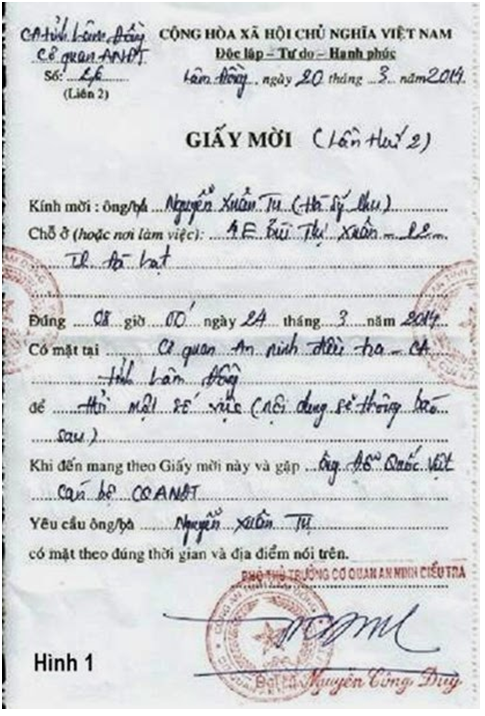 CA tỉnh Lâm Đồng
CỘNG HÒA XÃ HỘI CHỦ NGHĨA VIỆT NAM
Cơ quan ANĐT
Độc lập – Tự do – Hạnh phúc
Số: 26
(Liên 2)
Lâm Đồng, ngày 20 tháng 3 năm 2014
GIẤY MỜI (Lần thứ 2)
Kính mời : ông/bà Nguyễn Xuân Tụ (Hà Sỹ Phu)
Chỗ ở (hoặc nơi làm việc): 4E Bùi Thị Xuân – P2 –
TP. Đà Lạt
Đúng 08 giờ 00 ngày 24 tháng 3 năm 2014
Có mặt tại Cơ quan An ninh điều tra – CA
tỉnh Lâm Đồng
để Hỏi một số việc (nội dung sẽ thông báo
sau)
Khi đến mang theo Giấy mời này và gặp ông Đỗ Quốc Việt
Cán bộ CQANĐT
Yêu cầu ông/bà Nguyễn Xuân Tụ
có mặt theo đúng thời gian và địa điểm nói trên.
PHÓ THỦ TRƯỞNG CƠ QUAN AN NINH ĐIỀU TRA
Đại tá Nguyễn Công Duy
Hình 1